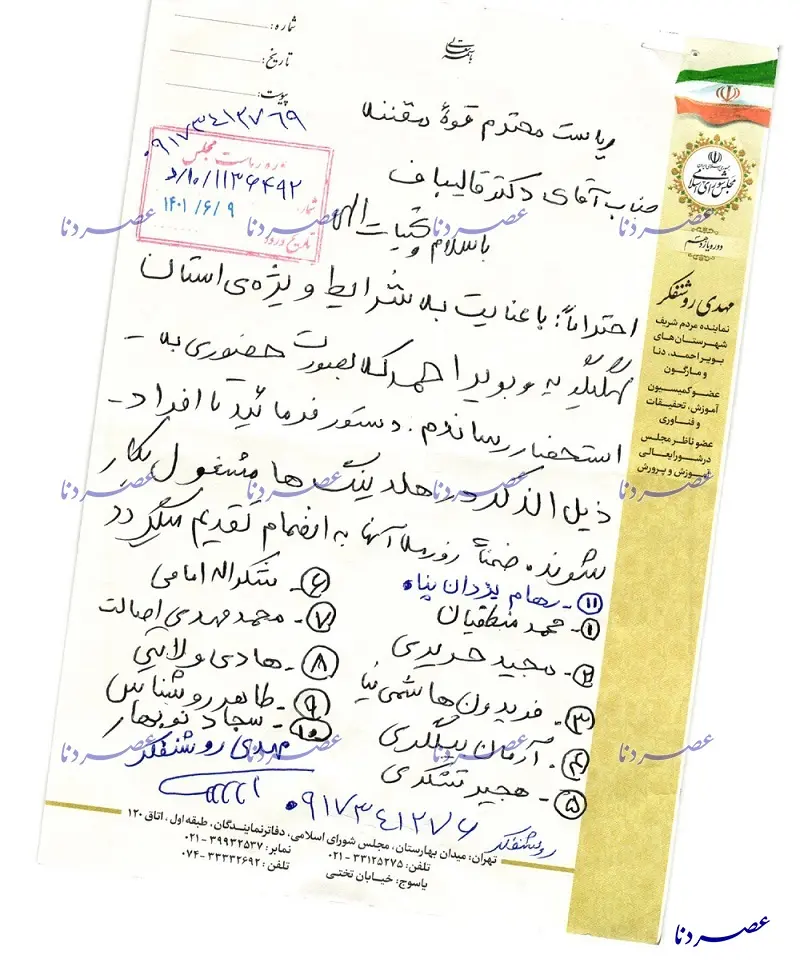 باسمه تعالی
شماره:
تاریخ:
پیوست:
۰۹۱۷۳۴۱۲۷۶۹
دوره ریاست مجلس
شماره: ۱۱۳۶۴۹۲/د/۱۰
۱۴۰۱/۶/۹
تاریخ ورود
ریاست محترم قوهٔ مقننه
جناب آقای دکتر قالیباف
با سلام و تحیات الهی
احتراماً؛ با عنایت به شرایط ویژه‌ی استان
کهگیلویه و بویراحمد که بصورت حضوری به -
استحضار رساندم. دستور فرمائید تا افراد -
ذیل الذکر در هلدینگ ها مشغول بکار
شوند. ضمناً رزومه آنها به انضمام تقدیم میگردد
۱۱- رهام یزدان پناه
۱- محمد منطقیان
۲- مجید حریری
۳- فریدون هاشمی نیا
۴- آرمان بیگلری
۵- هجیر تشکری
۶- شکراله امامی
۷- محمدمهدی اصالت
۸- هادی ولایتی
۹- طاهر روشناس
۱۰- سجاد نوبهار
مهدی روشنفکر
۰۹۱۷۳۴۱۲۷۶
روشنفکر
تهران: میدان بهارستان، مجلس شورای اسلامی، دفاتر نمایندگان، طبقه اول، اتاق ۱۲۰
تلفن: ۳۳۱۲۵۲۷۵-۰۲۱ نمابر: ۳۹۹۳۲۵۳۷-۰۲۱
یاسوج: خیابان تختی تلفن: ۳۳۳۳۲۶۹۲-۰۷۴
مجلس شورای اسلامی
دوره یازدهم
مهدی روشنفکر
نماینده مردم شریف
شهرستان‌های
بویراحمد، دنا
و مارگون
عضو کمیسیون
آموزش، تحقیقات
و فناوری
عضو ناظر مجلس
در شورایعالی
آموزش و پرورش
عصر دنا عصر دنا عصر دنا عصر دنا
عصر دنا عصر دنا عصر دنا عصر دنا
عصر دنا عصر دنا عصر دنا عصر دنا
عصر دنا